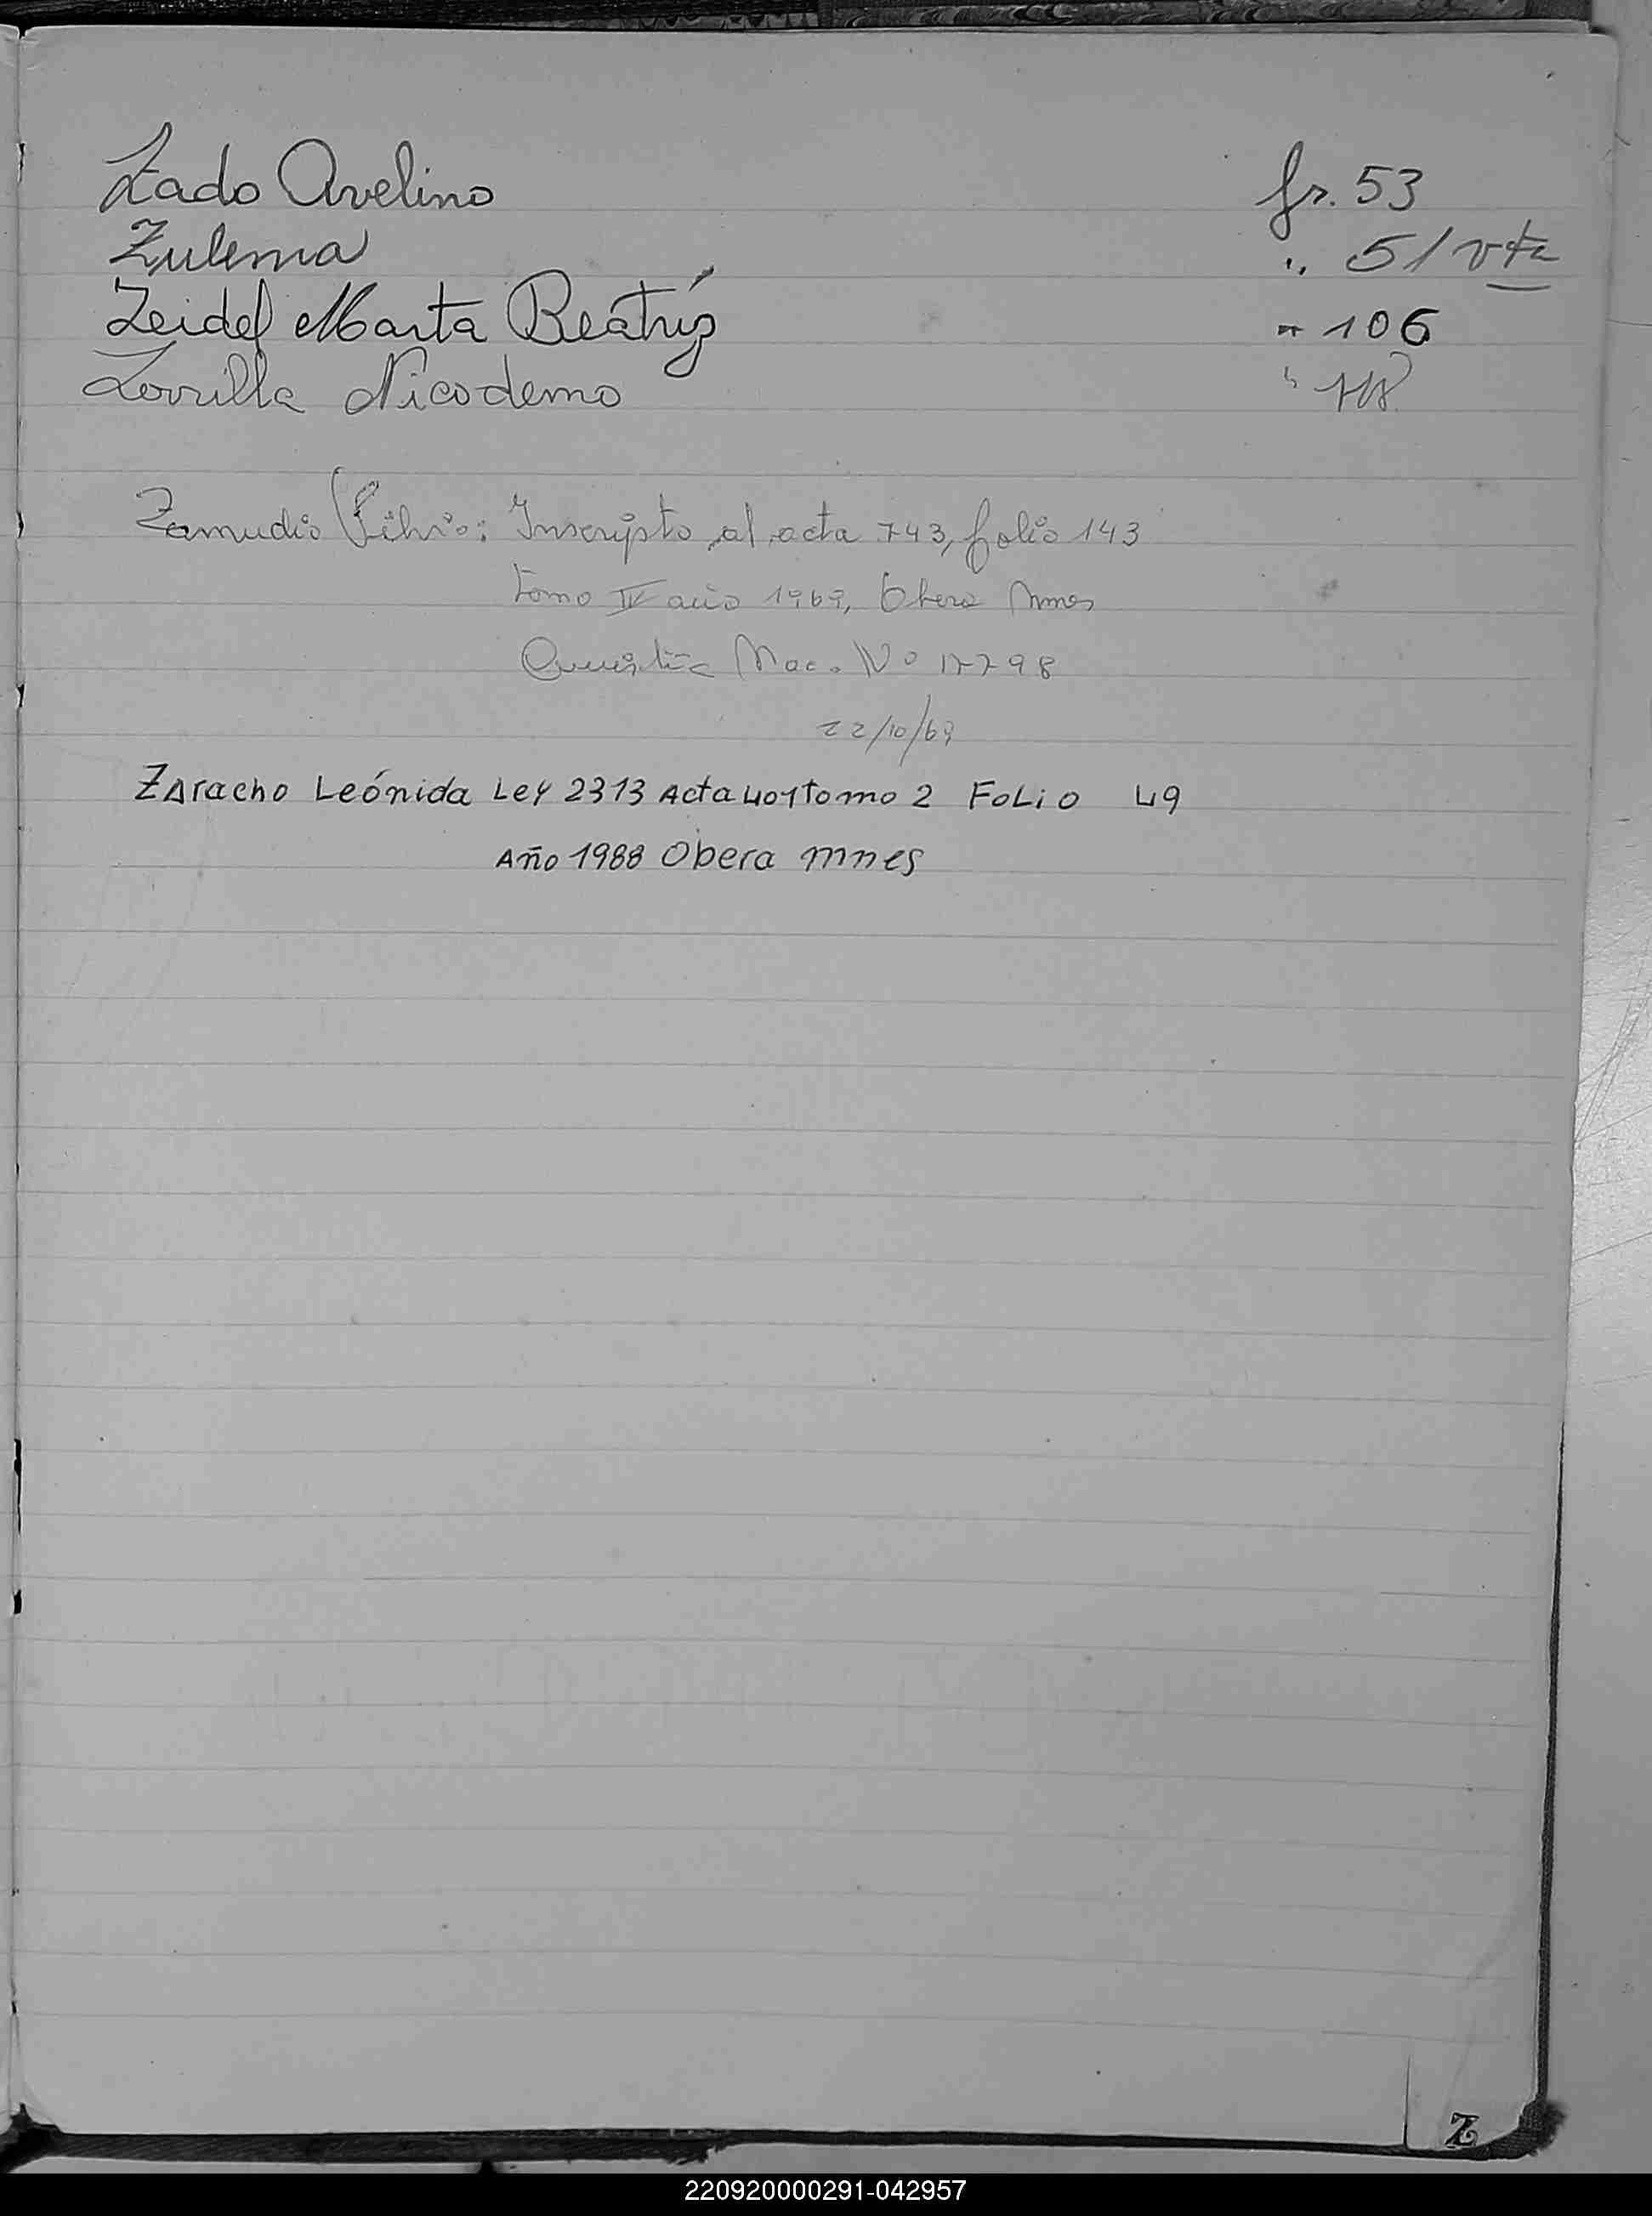 Zado Avelino fs. 53
Zulema " 51 vta
Zeidel Marta Beatríz " 106
Zorrilla Nicodemo " 118
Zamudio Silvio: Inscripto al acta 743, folio 143
tomo IV año 1969, Obera Mnes
Nac. Nº 17798
22/10/69
Zaracho Leónida Ley 2313 Acta 401 tomo 2 Folio 49
Año 1988 Obera mnes
Z
220920000291-042957